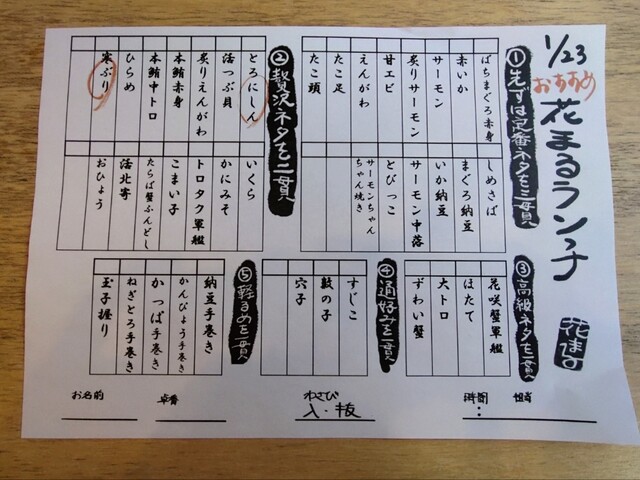 1/23
おすすめ
花まるランチ
花まる
①先ずは定番ネタを三貫
ばちまぐろ赤身
赤いか
サーモン
炙りサーモン
甘エビ
えんがわ
たこ足
たこ頭
しめさば
まぐろ納豆
いか納豆
サーモン中落
とびっこ
サーモンちゃんちゃん焼き
②贅沢ネタを二貫
とろにしん
活つぶ貝
炙りえんがわ
本鮪赤身
本鮪中トロ
ひらめ
寒ぶり
いくら
かにみそ
トロタク軍艦
こまい子
たらば蟹ふんどし
活北寄
おひょう
③高級ネタを一貫
花咲蟹軍艦
ほたて
大トロ
ずわい蟹
④通好みを一貫
すじこ
数の子
穴子
⑤軽るめを一貫
納豆手巻き
かんぴょう手巻き
かっぱ手巻き
ねぎとろ手巻き
玉子握り
お名前
卓番
わさび
入・抜
時間
:
担当